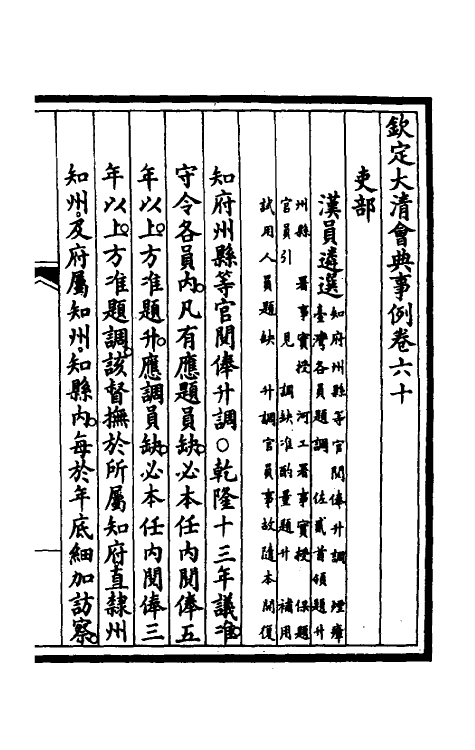 欽定大清會典事例卷六十
吏部
漢員遴選知府州縣等官閱俸升調 煙瘴
臺灣各員題調 佐貳首領題升
州縣 署事實授 河工署事實授 保題
官員引 見 調缺准酌量題升 補用
試用人員題缺 升調官員事故隨本開復
知府州縣等官閱俸升調○乾隆十三年議准。
守令各員內。凡有應題員缺。必本任內閱俸五
年以上。方准題升。應調員缺。必本任內閱俸三
年以上。方准題調。該督撫於所屬知府直隸州
知州。及府屬知州。知縣內。每於年底細加訪察。